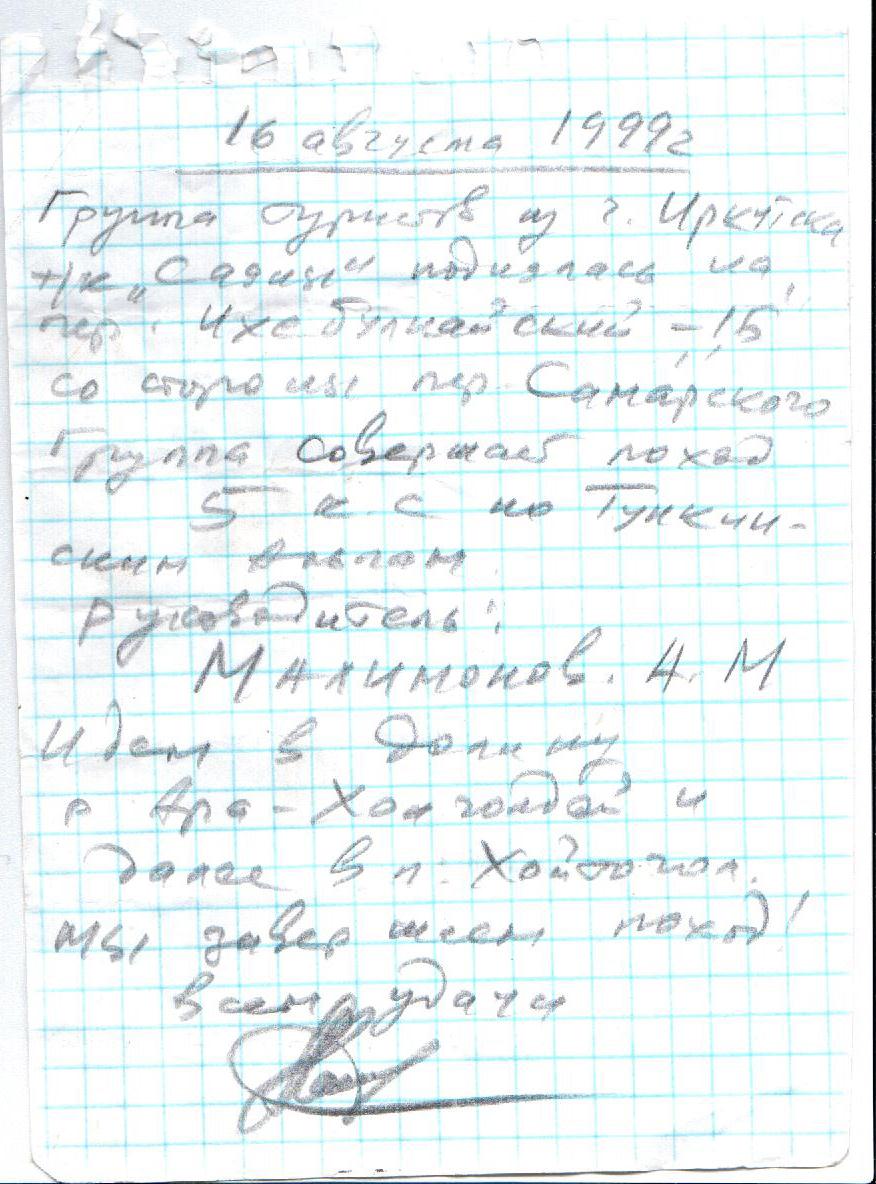 16 августа 1999г
Группа туристов из г. Иркутска
т/к „Саяны" поднялась на
пер. Ихе Булнайский – 1Б
со стороны пер. Самарского
Группа совершает поход
5 к.с по Тункин-
ским гольцам
руководитель:
Малимонов. А. М
Идем в долину
р Ара-Хончолдой и
далее в п. Хойтогол.
мы завершаем поход!
всем удачи